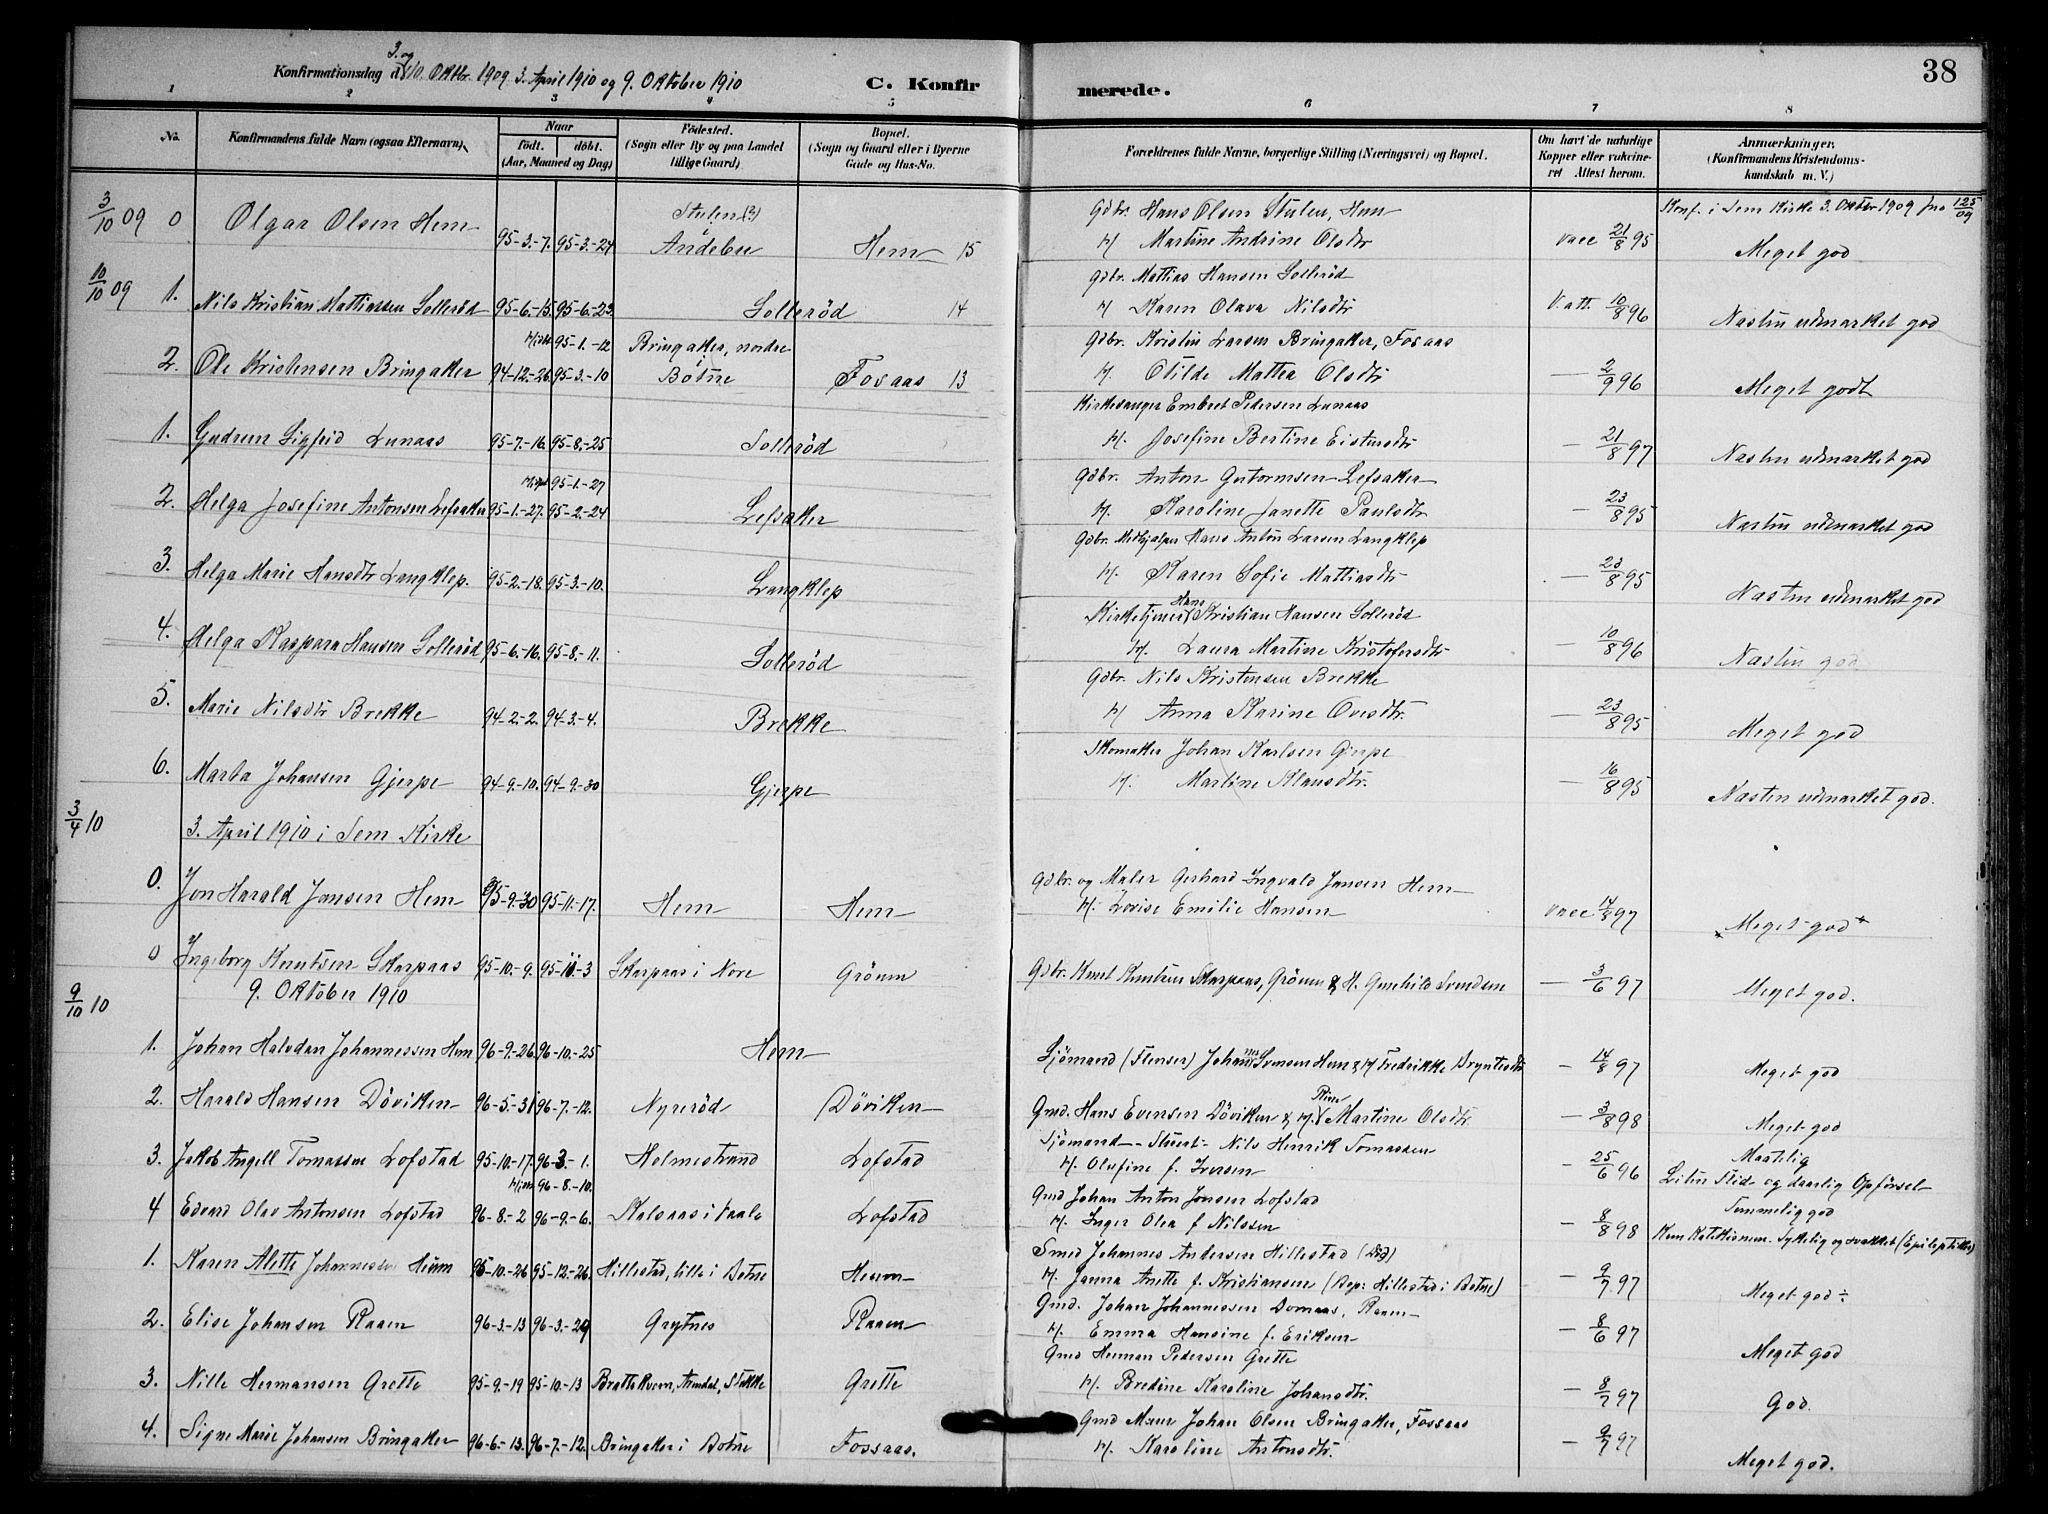 38
Konfirmationsdag d. 3. og 10. Oktbr. 1909. 3. April 1910 og 9. Oktober 1910
C. Konfirmerede.
1 2 3 4 5 6 7 8
No.
Konfirmandens fulde Navn (ogsaa Efternavn).
Naar
født. døbt.
(Aar, Maaned og Dag)
Fødested.
(Sogn eller By og paa Landet tillige Gaard)
Bopæl.
(Sogn og Gaard eller i Byerne Gade og Hus-No.
Forældrenes fulde Navne, borgerlige Stilling (Næringsvei) og Bopæl.
Om havt de naturlige Kopper eller vakcineret Attest herom.
Anmærkninger.
(Konfirmandens Kristendomskundskab m. V.)
3/10 09 0 Olgar Olsen Hem 95-3-7. 95-3-24 Stulen (?) Andebu Hem 15
Gdbr. Hans Olsen Stulen, Hem
H Martine Andrine Olsdtr vacc 21/8 95
Konf. i Sem Kirke 3. Oktber 1909 jno 125/09
Meget god
10/10 09 1. Nils Kristian Mattiassen Sollerød 95-6-15. 95-6-23. Sollerød 14
Gdbr. Mattias Hansen Sollerød
H Karen Olava Nilsdtr V. att. 10/8 96 Næsten udmærket god
2. Ole Kristensen Bringaker 94-12-26. Hjdt 95-1-12 95-3-10 Bringaker, nordre Botne Fosaas 13
Gdbr. Kristen Larsen Bringaker, Fosaas
H. Otilde Mattea Olsdtr — 2/9 96 Meget godt
1. Gudrun Sigfrid Lunaas 95-7-16. 95-8-25 Sollerød
Kirkesanger Embret Pedersen Lunaas
H. Josefine Bertine Eistensdtr — 21/8 97 Næsten udmærket god
2. Helga Josefine Antonsen Lefsaker 95-1-27. 95-1-27 95-2-24 Lefsaker
Gdbr. Anton Gutormsen Lefsaker
H. Karoline Janette Paulsdtr — 23/8 95 Næsten udmærket god
3. Helga Marie Hansdtr Langklep. 95-2-18. 95-3-10. Langklep
Gdbr. Medhjælper Hans Anton Larsen Langklep
H. Karen Sofie Mattiasdtr — 23/8 95 Næsten udmærket god
4. Helga Kaspara Hansen Sollerød 95-6-16. 95-8-11. Sollerød
Kirketjener Hans Kristian Hansen Sollerød
H. Laura Martine Kristofersdtr — 10/8 96 Næsten god
5. Marie Nilsdtr Brekke 94-2-2. 94-3-4. Brekke
Gdbr. Nils Kristensen Brekke
H Anna Karine Ovesdtr. — 23/8 95 Meget god
6. Marta Johansen Gjerpe 94-9-10. 94-9-30 Gjerpe
Skomaker Johan Karlsen Gjerpe
H. Martine Klausdtr. — 16/8 95 Næsten udmærket god.
3/4 10 3. April 1910 i Sem Kirke
0. Jon Harald Jansen Hem 95-9-30 95-11-17. Hem Hem
Gdbr. og Maler Gerhard Ingvald Jansen Hem
H. Lovise Emilie Hansen vacc 14/8 97 Meget god
0 Ingeborg Knutsen Skarpaas 95-10-9. 95-11-3 Skarpaas i Nore Grönen
Gdbr. Knut Knutsen Skarpaas, Grönen & H. Gunhild Svendsen — 3/6 97 Meget god.
9/10 10 9. Oktober 1910
1. Johan Halvdan Johannessen Hem 96-9-26. 96-10-25 Hem
Sjömand (Flenser) Johannes Svensen Hem & H Fredrikke Bryntesdtr — 14/8 97 Meget god
2. Harald Hansen Döviken 96-5-31 96-7-12. Nyrerød Döviken
Gmd. Hans Evensen Döviken & H. Martine Olsdtr. — 3/8 98 Meget god
3. Jakob Angell Tomassen Lofstad 95-10-17. 96-3-1. Holmestrand Lofstad
Sjömand - Stuert - Nils Henrik Tomassen
H. Olufine f. Iversen — 25/6 96 Maatelig
Liten Flid og daarlig Opförsel
4 Edvard Olav Antonsen Lofstad 96-8-2 Hjem 96-8-10. 96-9-6. Kalsaas i Vaale Lofstad
Gmd Johan Anton Jonsen Lofstad
H. Inger Olea f Nilssen — 8/8 98 Temmelig god
Kun Katekismen. Sykelig og svakhet (Epileptiker)
1. Karen Alette Johannessen Heum 95-10-26 95-12-26. Hillestad, lille i Botne Heum
Smed Johannes Andersen Hillestad (Död)
H. Janna Anette f. Kristiansen (Bop: Hillestad i Botne) — 9/7 97 Meget god ÷
2. Elise Johansen Raaen 96-3-13 96-3-29 Grytnes Raaen
Gmd. Johan Johannessen Domaas, Raaen
H. Emma Hansine f. Eriksen — 8/6 97 Meget god
3. Nille Hermansen Grette 95-9-19 95-10-13 Brattekværn, Arendal, Stokke Grette
Gmd Herman Pedersen Grette
H. Bredine Karoline Johansdtr. — 8/7 97 God.
4. Signe Marie Johansen Bringaker 96-6-13. 96-7-12. Bringaker i Botne Fossaas.
Gmd Murer Johan Olsen Bringaker, Fossaas
H. Karoline Antonsdtr. — 9/7 97 Meget god.